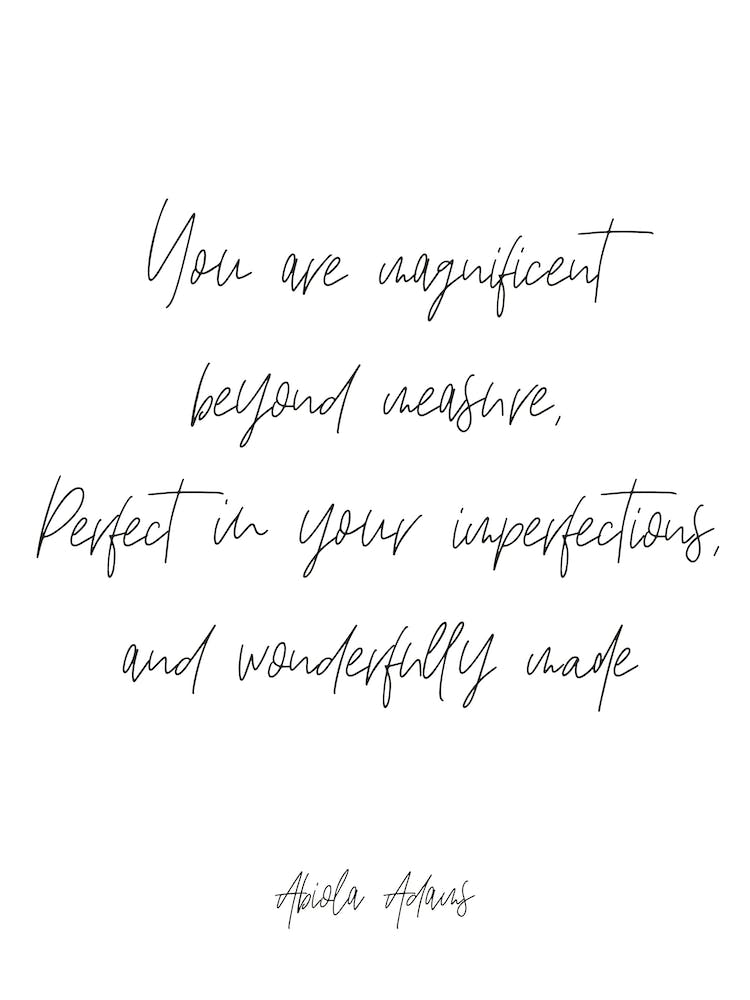 You are magnificent
beyond measure,
Perfect in your imperfections,
and wonderfully made
Abiola Adams